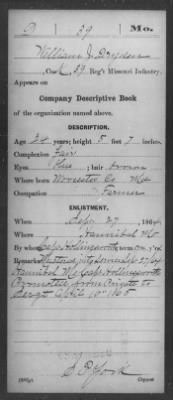 D 39 Mo.
William J. Dryden
Co. C, 39 Reg't Missouri Infantry.
Appears on
Company Descriptive Book
of the organization named above.
DESCRIPTION.
Age 34 years; height 5 feet 7 inches.
Complexion Fair
Eyes Blue; hair brown
Where born Worcester Co Md
Occupation Farmer
ENLISTMENT.
When Sept 27, 1864.
Where Hannibal Mo
By whom Capt Hollingsworth; term y'rs.
Remarks: Mustered into Service Sept 27/64
Hannibal Mo Capt Hollingsworth
Promoted from Private to
Sergt
S E York
Copyist.